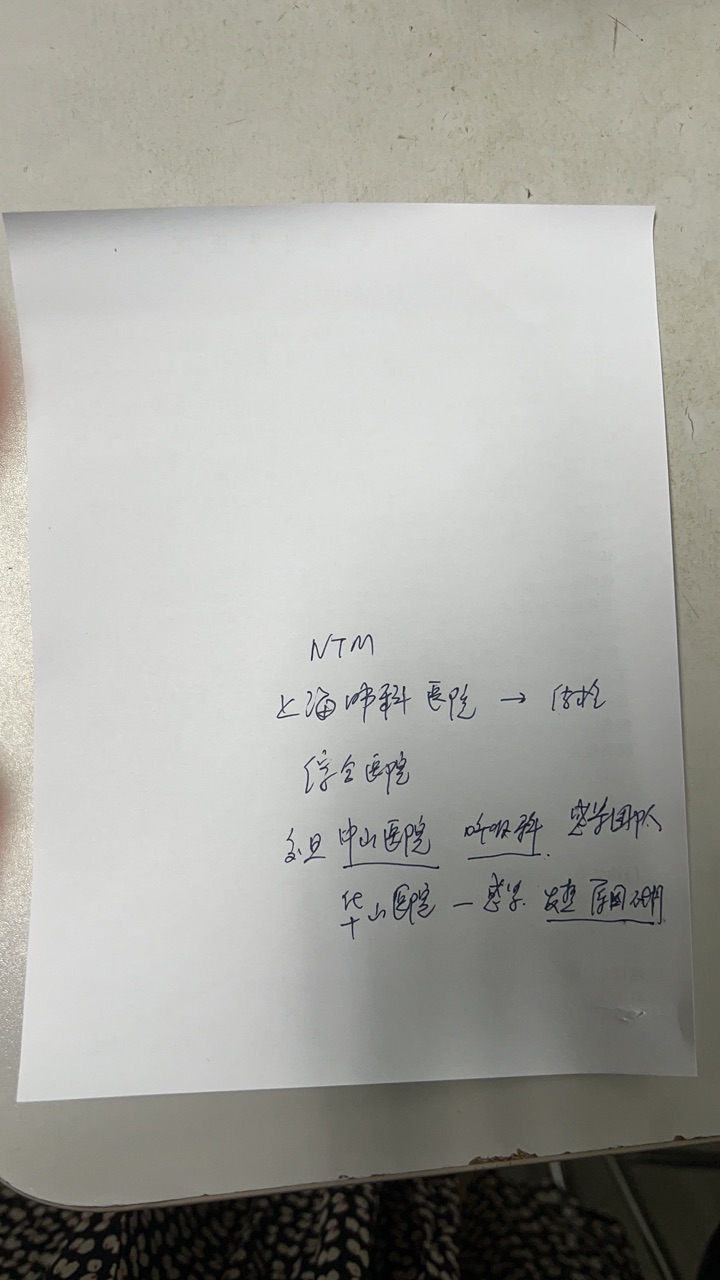 NTM
上海肺科医院 → 结核
综合医院
复旦 中山医院 呼吸科. 感染团队
华山医院 — 感染. 发热 原因不明